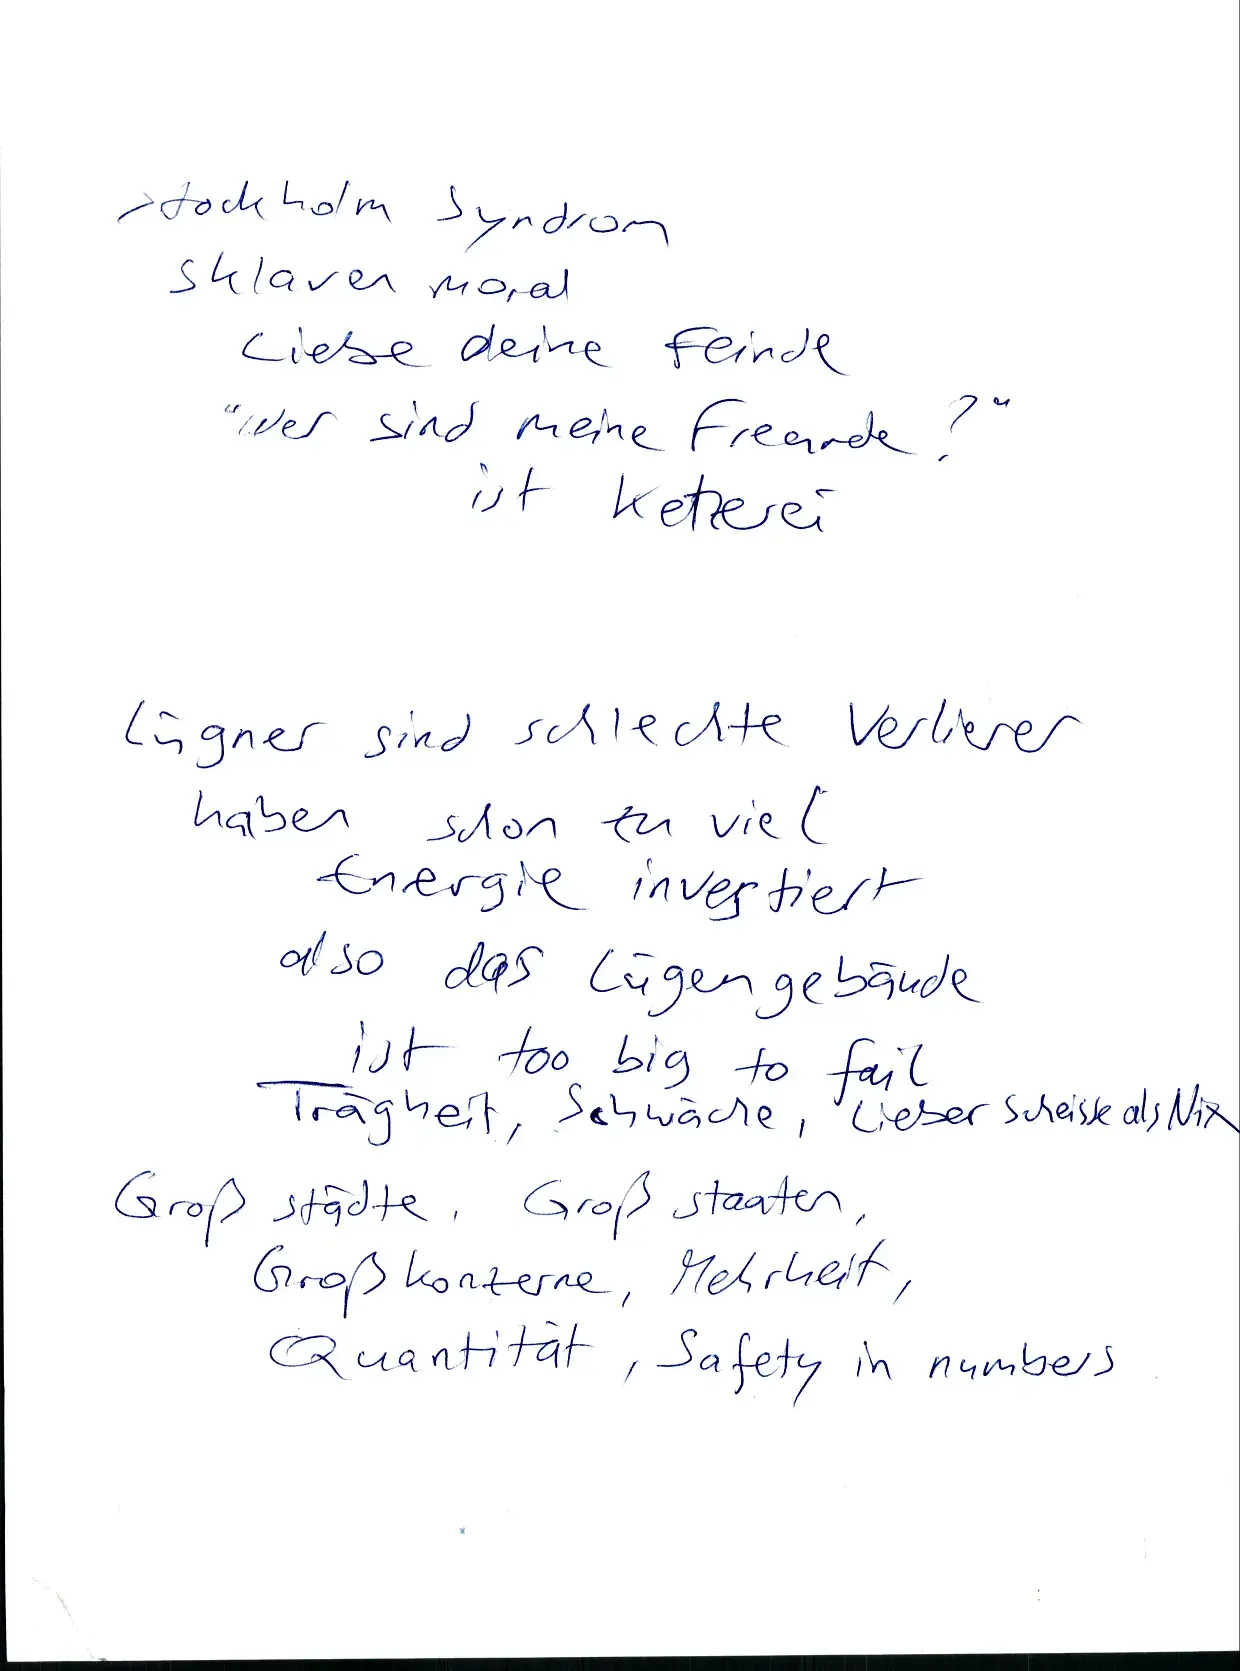 Stockholm Syndrom
Sklaven moral
Liebe deine Feinde
"Wer sind meine Freunde?"
ist Ketzerei
Lügner sind schlechte Verlierer
haben schon zu viel
Energie investiert
also das Lügengebäude
ist too big to fail
Trägheit, Schwäche, Lieber Scheisse als Nix
Großstädte, Großstaaten,
Großkonzerne, Mehrheit,
Quantität, Safety in numbers